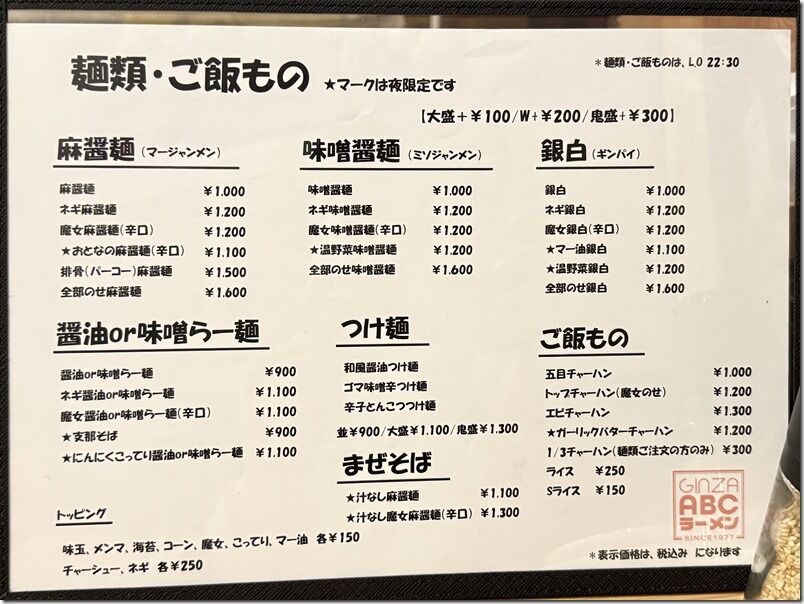 麺類・ご飯もの ★マークは夜限定です
＊麺類・ご飯ものは、L.O 22:30
【大盛＋￥100/W+￥200/鬼盛+￥300】
麻醤麺（マージャンメン）
麻醤麺 ￥1.000
ネギ麻醤麺 ￥1.200
魔女麻醤麺(辛口) ￥1.200
★おとなの麻醤麺(辛口) ￥1.100
排骨(パーコー)麻醤麺 ￥1.500
全部のせ麻醤麺 ￥1.600
味噌醤麺（ミソジャンメン）
味噌醤麺 ￥1.000
ネギ味噌醤麺 ￥1.200
魔女味噌醤麺(辛口) ￥1.200
★温野菜味噌醤麺 ￥1.200
全部のせ味噌醤麺 ￥1.600
銀白（ギンパイ）
銀白 ￥1.000
ネギ銀白 ￥1.200
魔女銀白(辛口) ￥1.200
★マー油銀白 ￥1.100
★温野菜銀白 ￥1.200
全部のせ銀白 ￥1.600
醤油or味噌らー麺
醤油or味噌らー麺 ￥900
ネギ醤油or味噌らー麺 ￥1.100
魔女醤油or味噌らー麺(辛口) ￥1.100
★支那そば ￥900
★にんにくこってり醤油or味噌らー麺 ￥1.100
つけ麺
和風醤油つけ麺
ゴマ味噌辛つけ麺
辛子とんこつつけ麺
並￥900/大盛￥1.100/鬼盛￥1.300
まぜそば
★汁なし麻醤麺 ￥1.100
★汁なし魔女麻醤麺(辛口) ￥1.300
ご飯もの
五目チャーハン ￥1.000
トップチャーハン(魔女のせ) ￥1.200
エビチャーハン ￥1.300
★ガーリックバターチャーハン ￥1.200
1/3チャーハン(麺類ご注文の方のみ) ￥300
ライス ￥250
Sライス ￥150
トッピング
味玉、メンマ、海苔、コーン、魔女、こってり、マー油 各￥150
チャーシュー、ネギ 各￥250
GINZA
ABC
ラーメン
SINCE1977
＊表示価格は、税込み になります